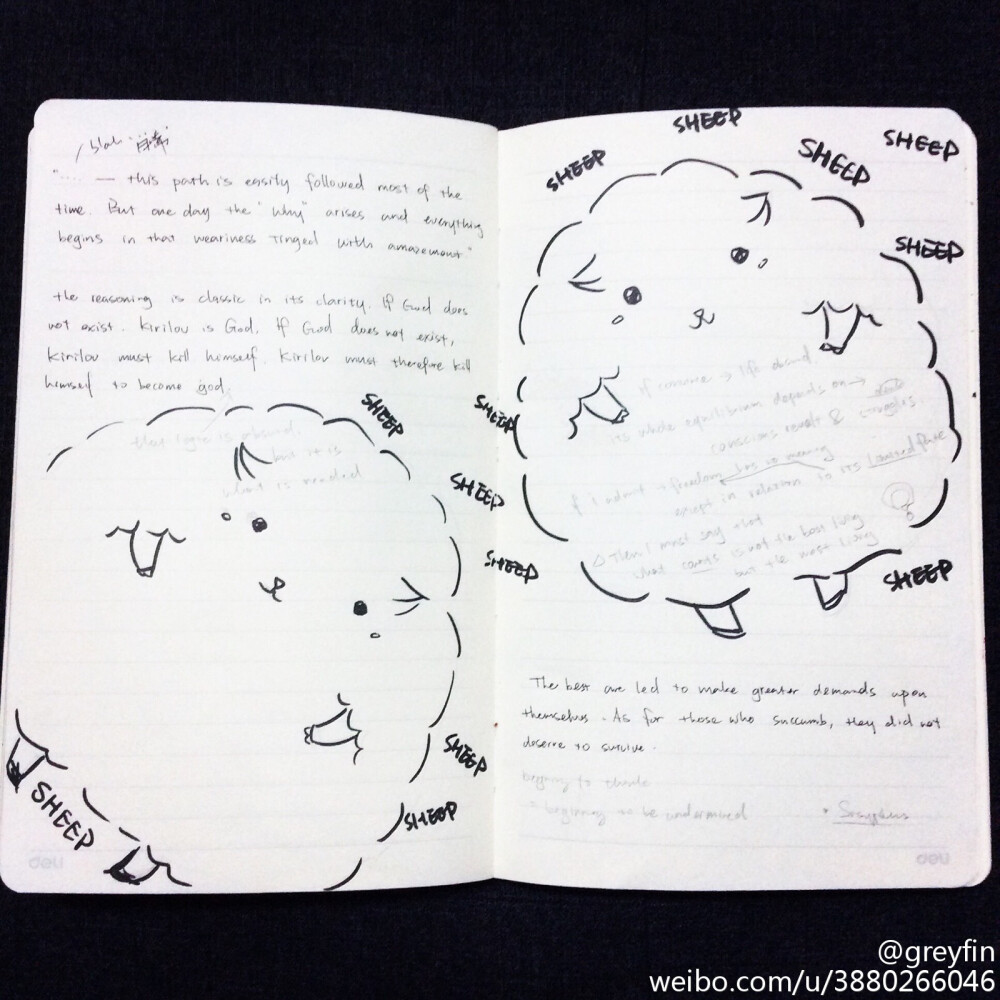 "..... — this path is easily followed most of the
time. But one day the "why" arises and everything
begins in that weariness tinged with amazement"
the reasoning is classic in its clarity. If God does
not exist. Kirilov is God. If God does not exist,
Kirilov must kill himself. Kirilov must therefore kill
himself to become god.
that logic is absurd.
but it is
what is needed
SHEEP
SHEEP
SHEEP
SHEEP
SHEEP
SHEEP
SHEEP
SHEEP
SHEEP
SHEEP
SHEEP
SHEEP
SHEEP
If → life absurd.
its whole equilibrium depends on →
conscious revolt &
If I admit freedom has no meaning
except in relation to its limited fate
Then I must say that
what counts is not the best living
but the most living
The best are led to make greater demands upon
themselves. As for those who succumb, they did not
deserve to survive.
beginning to think
beginning to be undermined
deli
deli
@greyfin
weibo.com/u/3880266046